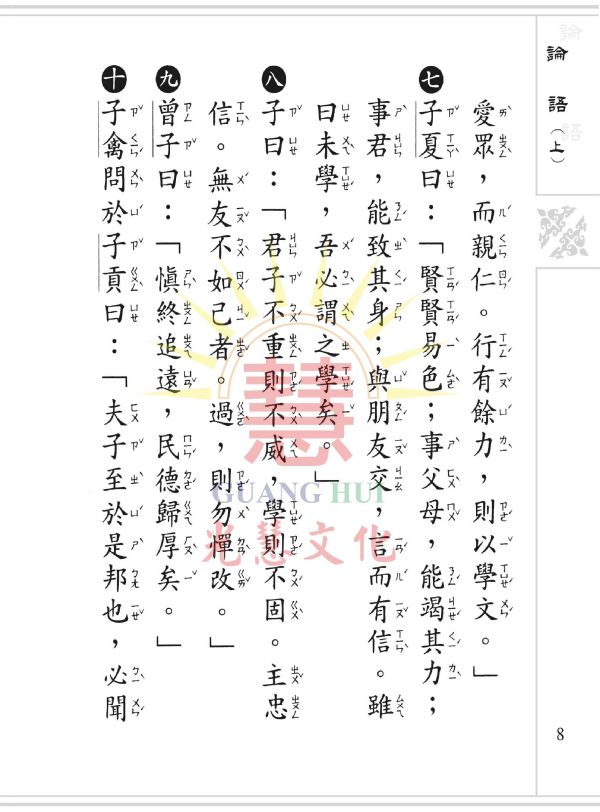 論語（上）
愛眾，而親仁。行有餘力，則以學文。」
七 子夏曰：「賢賢易色；事父母，能竭其力；
事君，能致其身；與朋友交，言而有信。雖
曰未學，吾必謂之學矣。」
八 子曰：「君子不重則不威，學則不固。主忠
信。無友不如己者。過，則勿憚改。」
九 曾子曰：「慎終追遠，民德歸厚矣。」
十 子禽問於子貢曰：「夫子至於是邦也，必聞
8
慧
GUANG HUI
光慧文化